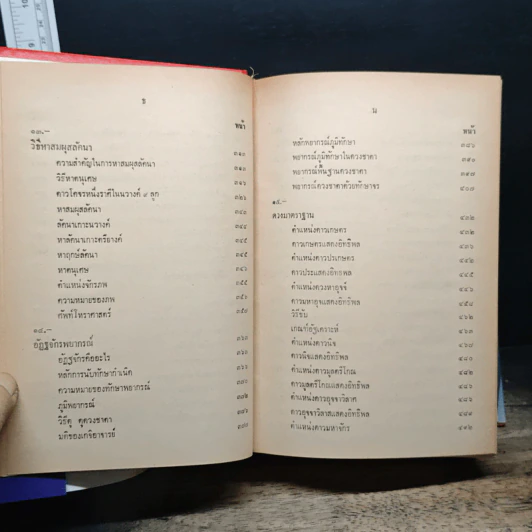 ธ
หน้า
๑๗.–
วิธีหาสมผุสลัคนา ๓๑๐
ความสำคัญในการหาสมผุสลัคนา ๓๑๐
วิธีหาคนุเศษ ๓๑๖
ดาวโคจรหนึ่งราศีในนวางค์ ๙ ลูก ๓๒๖
หาสมผุสลัคนา ๓๔๐
ลัคนาเกาะนวางค์ ๓๔๕
หาลัคนาเกาะตรียางค์
หาฤกษ์ลัคนา ๓๔๕
หาคนุเศษ ๓๔๖
ตำแหน่งจักรภพ ๓๕๕
ความหมายของภพ ๓๕๕
ศัพท์โหราศาสตร์ ๓๕๘
๑๘.–
อัฏฐจักรพยากรณ์ ๓๖๐
อัฏฐจักรคืออะไร ๓๖๐
หลักการนับทักษากำเนิด
ความหมายของทักษาพยากรณ์
ภูมิพยากรณ์
วิธีดู ดูดวงชาตา
มติของเกจิอาจารย์
น
หน้า
หลักพยากรณ์ภูมิทักษา ๓๘๖
พยากรณ์ภูมิทักษาในดวงชาตา ๓๙๐
พยากรณ์พื้นฐานดวงชาตา ๓๙๗
พยากรณ์ดวงชาตาด้วยทักษาจร
๑๙.–
ดวงมาตราฐาน ๔๓๒
ตำแหน่งดาวเกษตร ๔๓๒
ดาวเกษตรแสดงอิทธิพล ๔๓๖
ตำแหน่งดาวประเกษตร ๔๔๒
ดาวประแสดงอิทธิพล ๔๔๕
ตำแหน่งดวงมหาอุจจ์ ๔๕๕
ดาวมหาอุจแสดงอิทธิพล ๔๕๘
วิธีขับ ๔๖๒
เกณฑ์อัฐเคราะห์ ๔๖๓
ตำแหน่งดาวนิจ ๔๖๘
ดาวนิจแสดงอิทธิพล ๔๘๐
ตำแหน่งดาวมูลตรีโกณ ๔๘๒
ดาวมูลตรีโกณแสดงอิทธิพล ๔๘๕
ตำแหน่งดาวอุจจาวิลาศ ๔๘๖
ดาวอุจจาวิลาสแสดงอิทธิพล ๔๘๙
ตำแหน่งดาวมหาจักร ๔๙๒